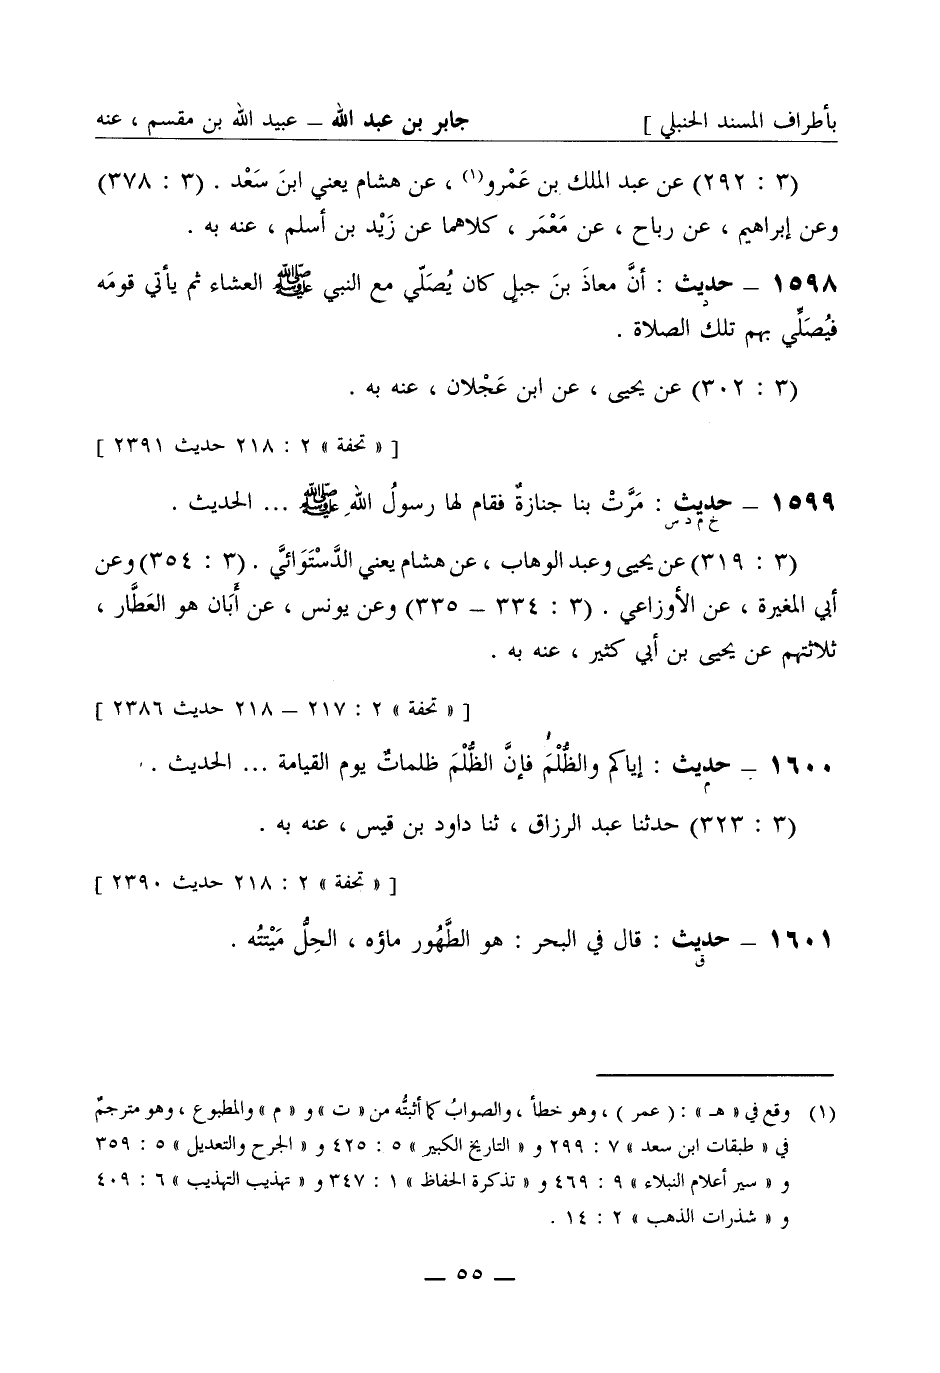 بأطراف المسند الحنبلي ] جابر بن عبد الله ــ عبيد الله بن مقسم ، عنه
(٣ : ٢٩٢) عن عبد الملك بن عَمْرو(١) ، عن هشام يعني ابنَ سَعْد . (٣ : ٣٧٨)
وعن إبراهيم ، عن رباح ، عن مَعْمَر ، كلاهما عن زَيْد بن أسلم ، عنه به .
١٥٩٨ ــ حديث : أنَّ معاذَ بنَ جبلٍ كان يُصَلّي مع النبي ﷺ العشاء ثم يأتي قومَه
د
فيُصَلِّي بهم تلك الصلاة .
(٣ : ٣٠٢) عن يحيى ، عن ابن عَجْلان ، عنه به .
[ « تحفة » ٢ : ٢١٨ حديث ٢٣٩١ ]
١٥٩٩ ــ حديث : مَرَّتْ بنا جنازةٌ فقام لها رسولُ اللهِ ﷺ ... الحديث .
خ م د س
(٣ : ٣١٩) عن يحيى وعبد الوهاب ، عن هشام يعني الدَّسْتَوَائيَّ . (٣ : ٣٥٤) وعن
أبي المغيرة ، عن الأوزاعي . (٣ : ٣٣٤ ــ ٣٣٥) وعن يونس ، عن أَبَان هو العَطَّار ،
ثلاثتهم عن يحيى بن أبي كثير ، عنه به .
[ « تحفة » ٢ : ٢١٧ ــ ٢١٨ حديث ٢٣٨٦ ]
١٦٠٠ ــ حديث : إياكم والظُّلْمَ فإنَّ الظُّلْمَ ظلماتٌ يوم القيامة ... الحديث .
م
(٣ : ٣٢٣) حدثنا عبد الرزاق ، ثنا داود بن قيس ، عنه به .
[ « تحفة » ٢ : ٢١٨ حديث ٢٣٩٠ ]
١٦٠١ ــ حديث : قال في البحر : هو الطَّهُور ماؤه ، الحِلُّ مَيْتتُه .
ق
(١) وقع في « هـ » : ( عمر ) ، وهو خطأ ، والصوابُ كما أثبتُّه من « ت » و « م » والمطبوع ، وهو مترجمٌ
في « طبقات ابن سعد » ٧ : ٢٩٩ و « التاريخ الكبير » ٥ : ٤٢٥ و « الجرح والتعديل » ٥ : ٣٥٩
و « سير أعلام النبلاء » ٩ : ٤٦٩ و « تذكرة الحفاظ » ١ : ٣٤٧ و « تهذيب التهذيب » ٦ : ٤٠٩
و « شذرات الذهب » ٢ : ١٤ .
ــ ٥٥ ــ